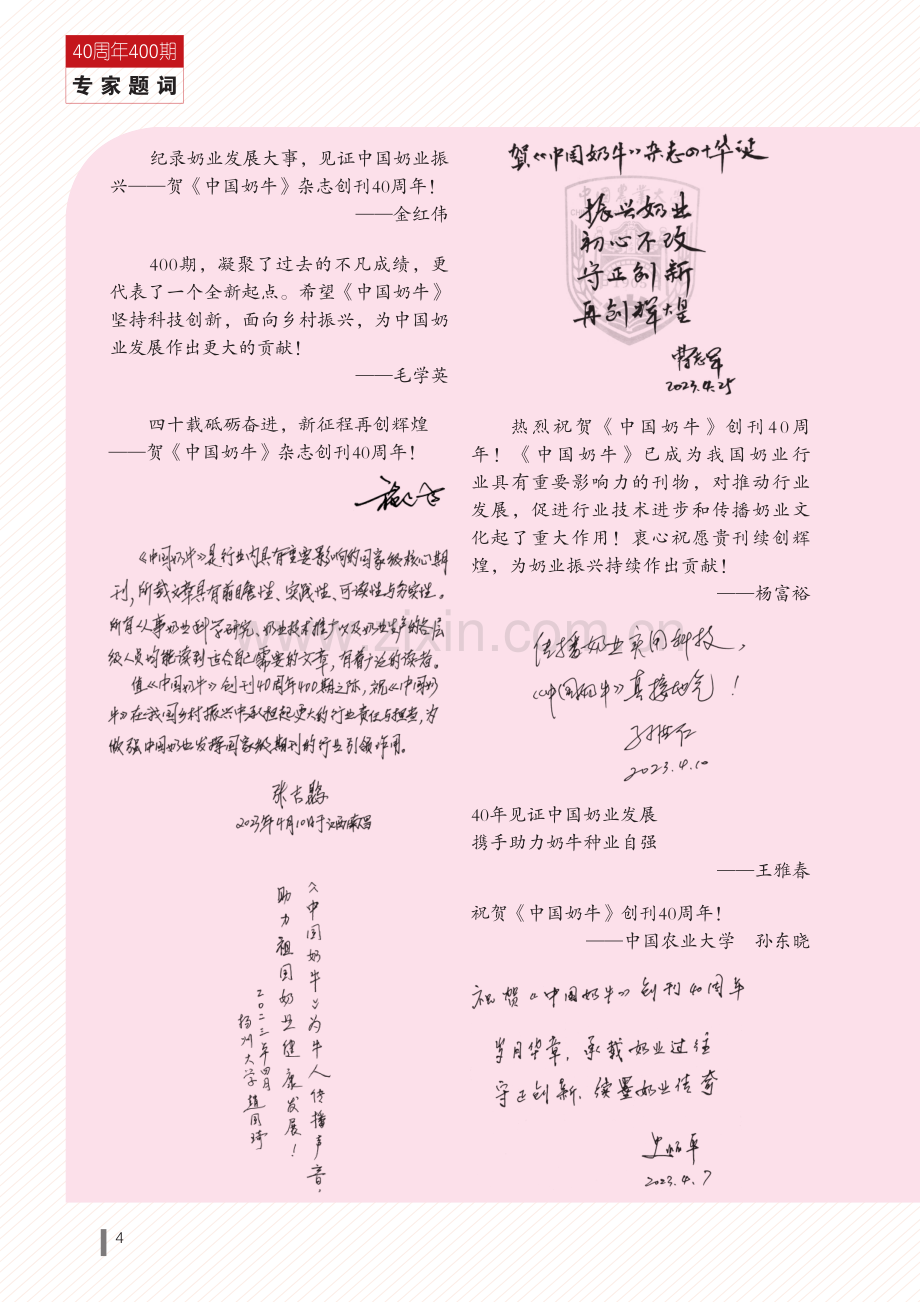 40周年400期
专家题词
纪录奶业发展大事，见证中国奶业振
兴——贺《中国奶牛》杂志创刊40周年！
——金红伟
400期，凝聚了过去的不凡成绩，更
代表了一个全新起点。希望《中国奶牛》
坚持科技创新，面向乡村振兴，为中国奶
业发展作出更大的贡献！
——毛学英
四十载砥砺奋进，新征程再创辉煌
——贺《中国奶牛》杂志创刊40周年！
《中国奶牛》是行业内具有重要影响的国家级核心期
刊，所载文章具有前瞻性、实践性、可读性与务实性。
所有从事奶业科学研究、奶业技术推广以及奶业生产的各层
级人员均能读到适合自己需要的文章，有着广泛的读者。
值《中国奶牛》创刊40周年400期之际，祝《中国奶
牛》在我国乡村振兴中承担起更大的行业责任与担当，为
做强中国奶业发挥国家级期刊的行业引领作用。
张吉鹍
2023年4月10日于江西南昌
《中国奶牛》为牛人传播声音，
助力祖国奶业健康发展！
二〇二三年四月
扬州大学 赵国琦
贺《中国奶牛》杂志四十华诞
振兴奶业
初心不改
守正创新
再创辉煌
曹志军
2023.4.25
热烈祝贺《中国奶牛》创刊40周
年！《中国奶牛》已成为我国奶业行
业具有重要影响力的刊物，对推动行业
发展，促进行业技术进步和传播奶业文
化起了重大作用！衷心祝愿贵刊续创辉
煌，为奶业振兴持续作出贡献！
——杨富裕
传播奶业实用科技，
《中国奶牛》真接地气！
2023.4.10
40年见证中国奶业发展
携手助力奶牛种业自强
——王雅春
祝贺《中国奶牛》创刊40周年！
——中国农业大学 孙东晓
祝贺《中国奶牛》创刊40周年
岁月华章，承载奶业过往
守正创新，续墨奶业传奇
史炳平
2023.4.7
www.zixin.com.cn
4